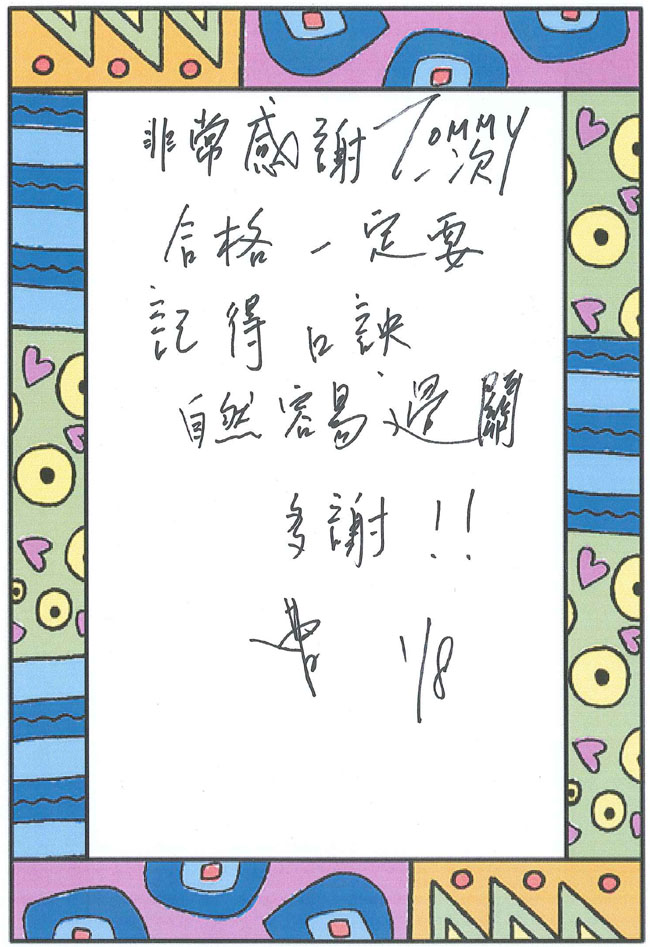 非常感謝 TOMMY 一次
合格一定要
記得口訣
自然容易過關
多謝!!
1/8